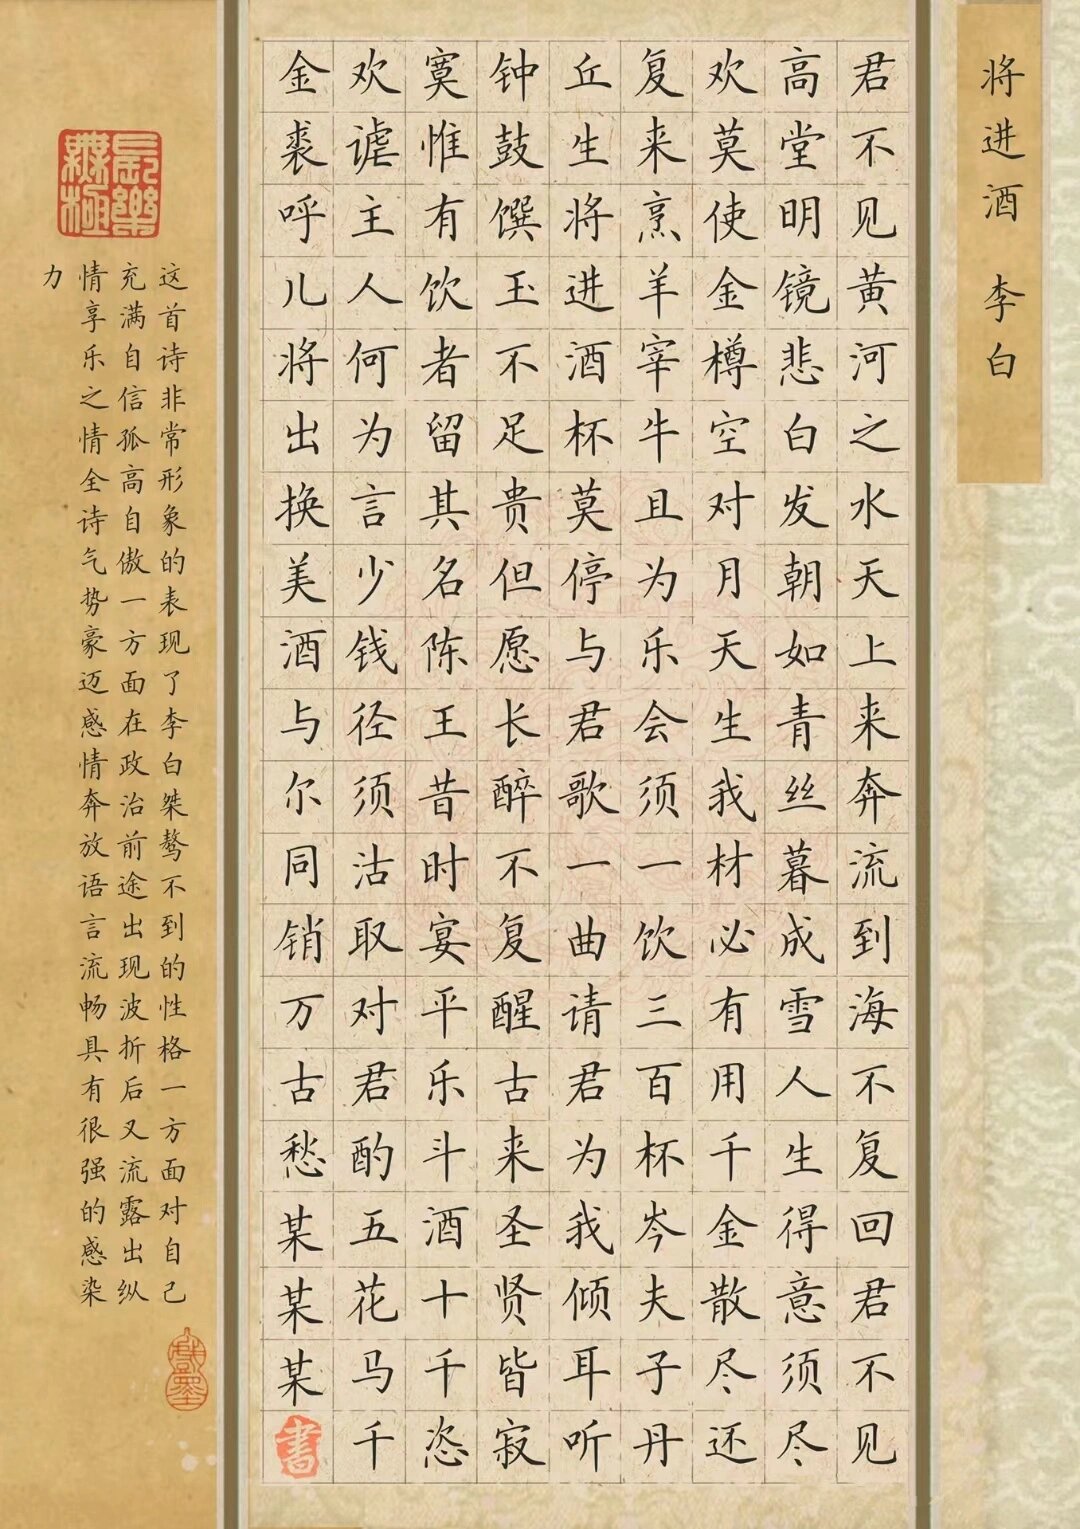 将进酒 李白
君不见黄河之水天上来奔流到海不复回君不见
高堂明镜悲白发朝如青丝暮成雪人生得意须尽
欢莫使金樽空对月天生我材必有用千金散尽还
复来烹羊宰牛且为乐会须一饮三百杯岑夫子丹
丘生将进酒杯莫停与君歌一曲请君为我倾耳听
钟鼓馔玉不足贵但愿长醉不复醒古来圣贤皆寂
寞惟有饮者留其名陈王昔时宴平乐斗酒十千恣
欢谑主人何为言少钱径须沽取对君酌五花马千
金裘呼儿将出换美酒与尔同销万古愁某某某書
長樂
無極
这首诗非常形象的表现了李白桀骜不到的性格一方面对自己
充满自信孤高自傲一方面在政治前途出现波折后又流露出纵
情享乐之情全诗气势豪迈感情奔放语言流畅具有很强的感染
力